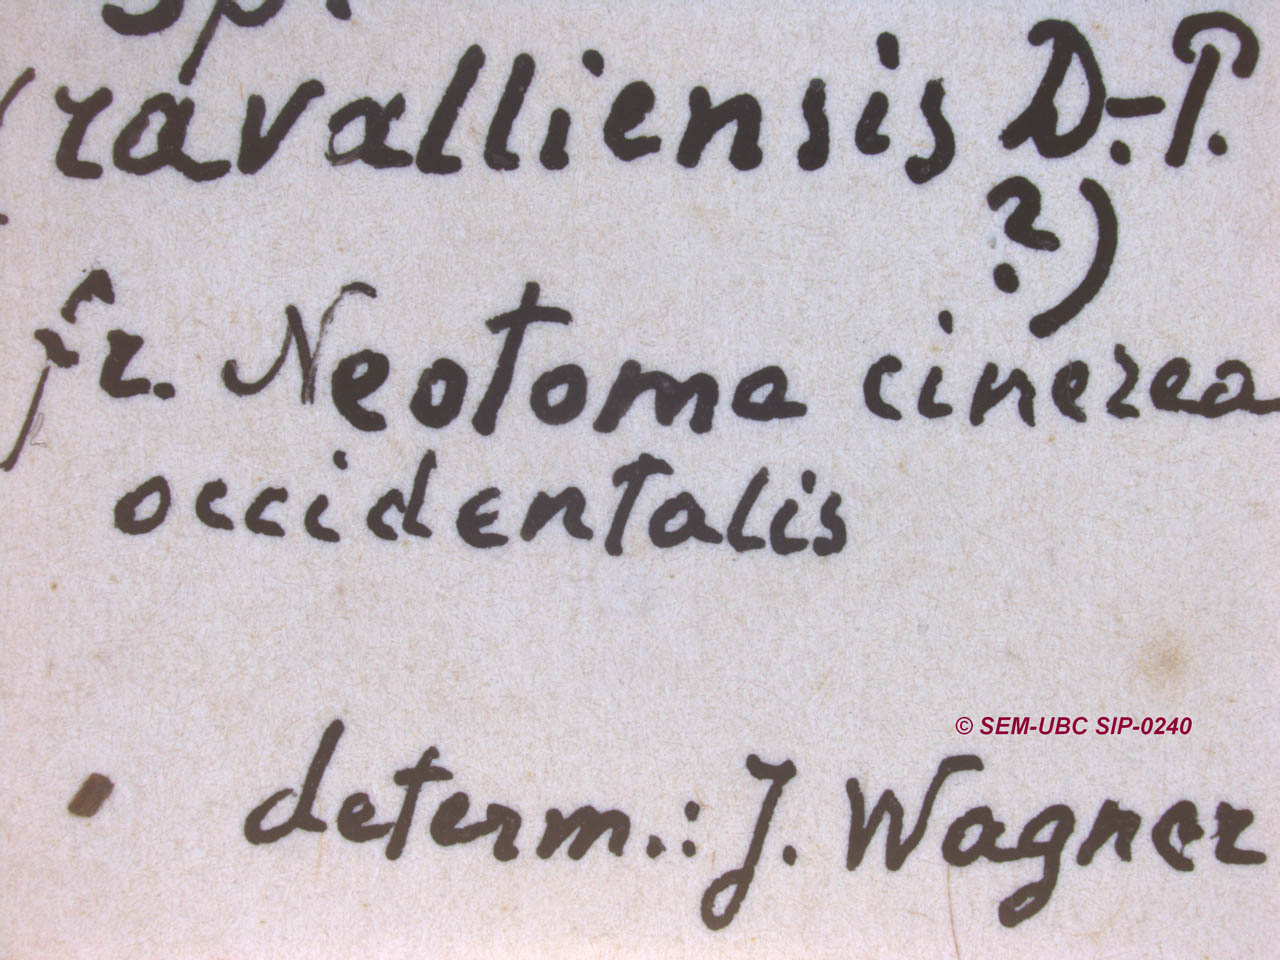 sp.
(ravalliensis D.-P.
?)
fr. Neotoma cinerea
occidentalis
© SEM-UBC SIP-0240
determ.: J. Wagner